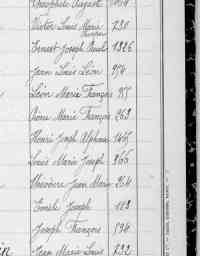 Théophile August
Victor Louis Marie 730
François
Ernest Joseph Paul 1326
Jean Louis Léon 954
Léon Marie François 95
Pierre Marie François 263
Henri Joseph Alphonse 1465
Louis Marie Joseph 866
Théodore Jean Marie 964
Ernest Joseph
Joseph François 594
Jean Marie Louis 732